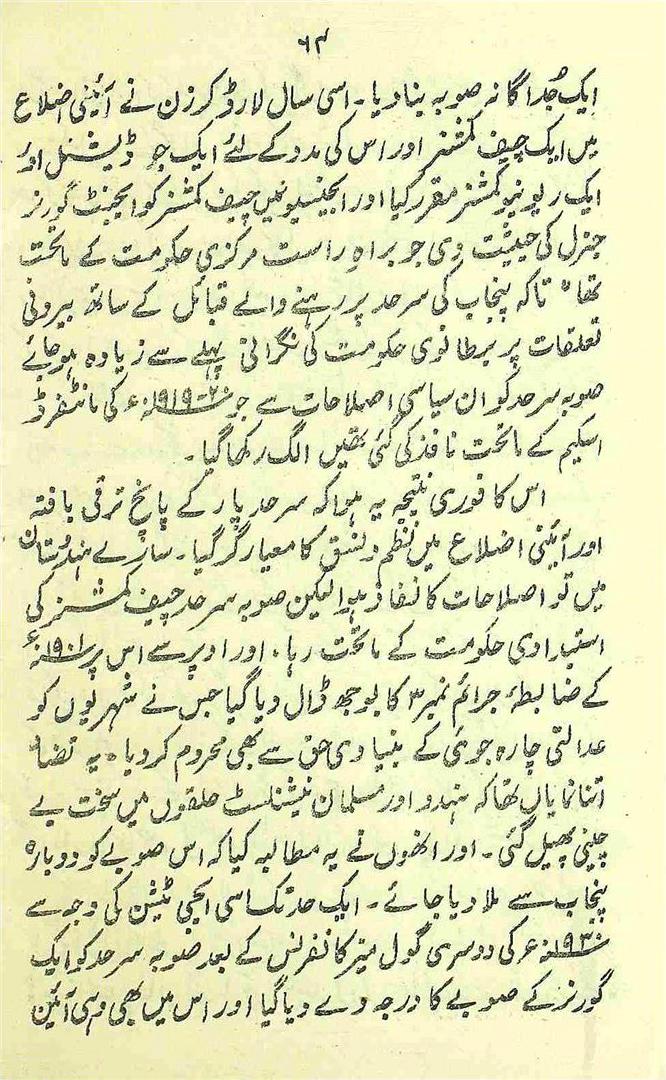 ۶۴
ایک جُداگانہ صوبہ بنا دیا۔ اسی سال لارڈ کرزن نے آئینی اضلاع
میں ایک چیف کمشنر اور اس کی مدد کے لئے ایک جوڈیشنل اور
ایک ریونیو کمشنر مقرر کیا اور ایجنسیوںمیں چیف کمشنر کو ایجنٹ گورنر
جنرل کی حیثیت دی جو براہِ راست مرکزی حکومت کے ماتحت
تھا" تاکہ پنجاب کی سرحد پر رہنے والے قبائل کے ساتھ بیرونی
تعلقات پر برطانوی حکومت کی نگرانی پہلے سے زیادہ ہو جائے
صوبہ سرحد کو ان سیاسی اصلاحات سے جو ۲۰-۱۹۱۹ء کی مانٹفرڈ
اسکیم کے ماتحت نافذ کی گئی تھیں الگ رکھا گیا۔
اس کا فوری نتیجہ یہ ہوا کہ سرحد پار کے پانچ ترقی یافتہ
اور آئینی اضلاع میں نظم و نسق کا معیار گر گیا۔ سارے ہندوستان
میں تو اصلاحات کا نفاذ ہوا لیکن صوبہ سرحد چیف کمشنر کی
استبدادی حکومت کے ماتحت رہا۔ اور اوپر سے اس پر ۱۹۰۱ء
کے ضابطۂ جرائم نمبر ۳ کا بوجھ ڈال دیا گیا جس نے شہریوں کو
عدالتی چارہ جوئی کے بنیادی حق سے بھی محروم کر دیا۔ یہ تضاد
اتنا نمایاں تھا کہ ہندو اور مسلمان نیشنلسٹ حلقوں میں سخت بے
چینی پھیل گئی۔ اور انھوں نے یہ مطالبہ کیا کہ اس صوبے کو دوبارہ
پنجاب سے ملا دیا جائے۔ ایک حد تک اسی ایجی ٹیشن کی وجہ سے
۱۹۳۰ء کی دوسری گول میز کانفرنس کے بعد صوبہ سرحد کو ایک
گورنر کے صوبے کا درجہ دے دیا گیا اور اس میں بھی وہی آئین